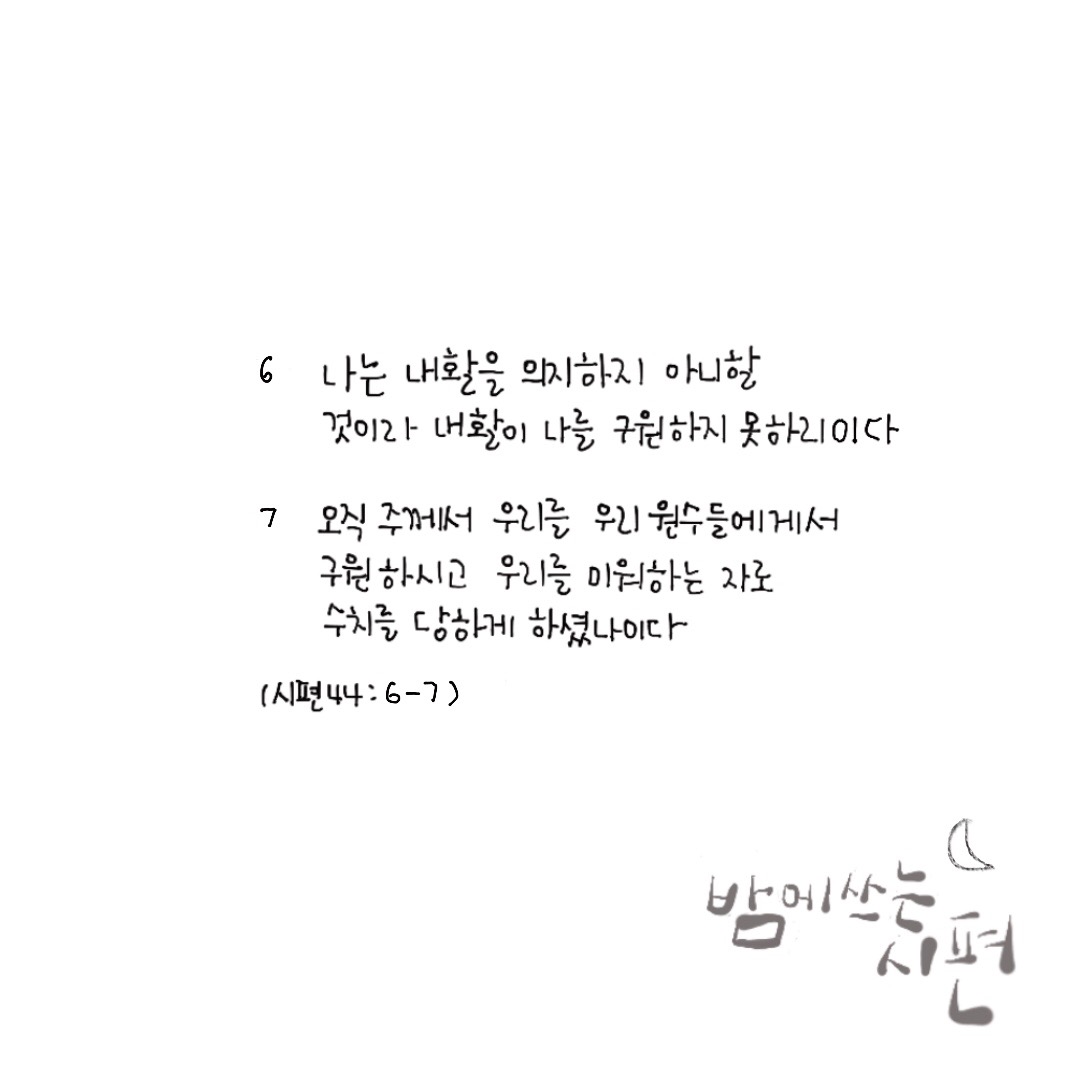 6 나는 내활을 의지하지 아니할
것이라 내활이 나를 구원하지 못하리이다
7 오직 주께서 우리를 우리 원수들에게서
구원하시고 우리를 미워하는 자로
수치를 당하게 하셨나이다
(시편44:6-7)
밤에쓰는
시편